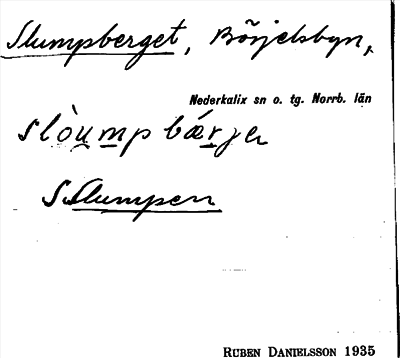 Slumpberget, Börjelsbyn,
Nederkalix sn o. tg. Norrb. län
slòumpbǽrje
S. Slumpen
RUBEN DANIELSSON 1935